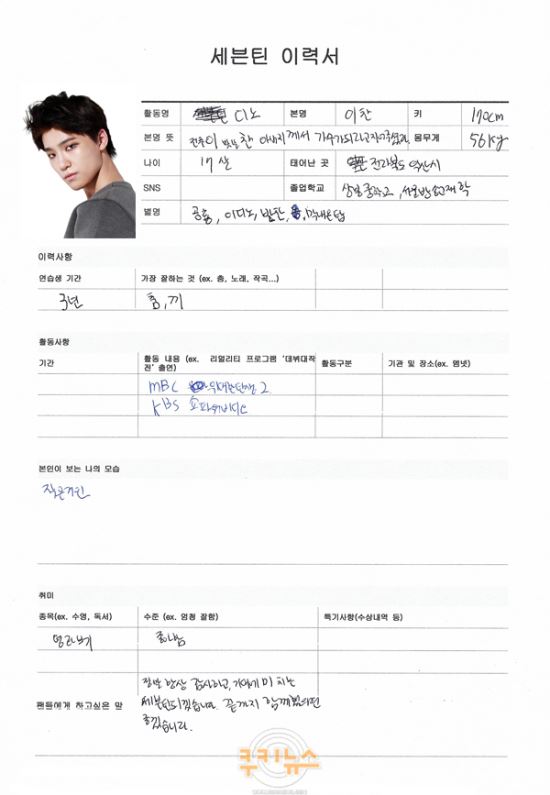 세븐틴 이력서
활동명 디노 본명 이찬 키 170cm
본명 뜻 께서 몸무게 56kg
나이 17살 태어난 곳 전라북도 익산시
SNS 졸업학교
별명 공룡, 이디노,
이력사항
연습생 기간 가장 잘하는 것 (ex. 춤, 노래, 작곡...)
3년 춤, 끼
활동사항
기간 활동 내용 (ex. 리얼리티 프로그램 '데뷔대작전' 출연) 활동구분 기관 및 장소(ex. 엠넷)
MBC 위대한탄생2
KBS
본인이 보는 나의 모습
작은거인
취미
종목(ex. 수영, 독서) 수준 (ex. 엄청 잘함) 특기사항(수상내역 등)
영화보기
정말 항상 감사하고,
팬들에게 하고싶은 말 세븐틴되겠습니다. 끝까지 함께했으면
좋겠습니다.
쿠키뉴스